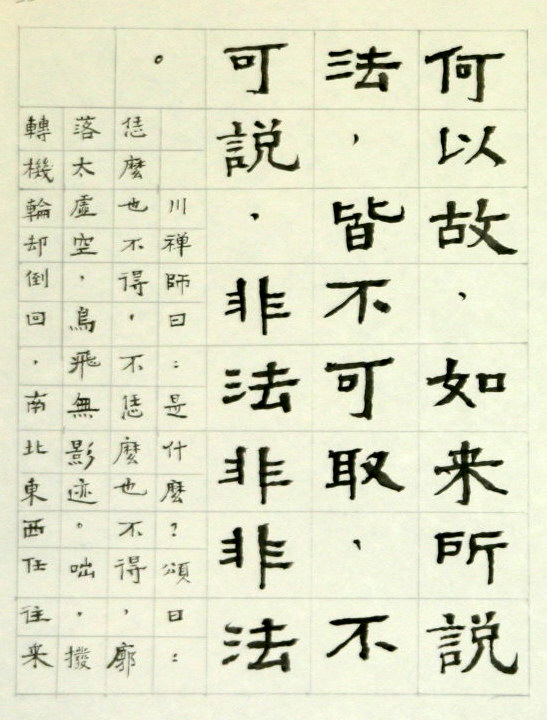 何以故，如来所説
法，皆不可取、不
可説，非法非非法
。
川禅師曰：是什麽？頌曰：
恁麽也不得，不恁麽也不得，廓
落太虚空，鳥飛無影迹。咄，撥
轉機輪却倒回，南北東西任往来